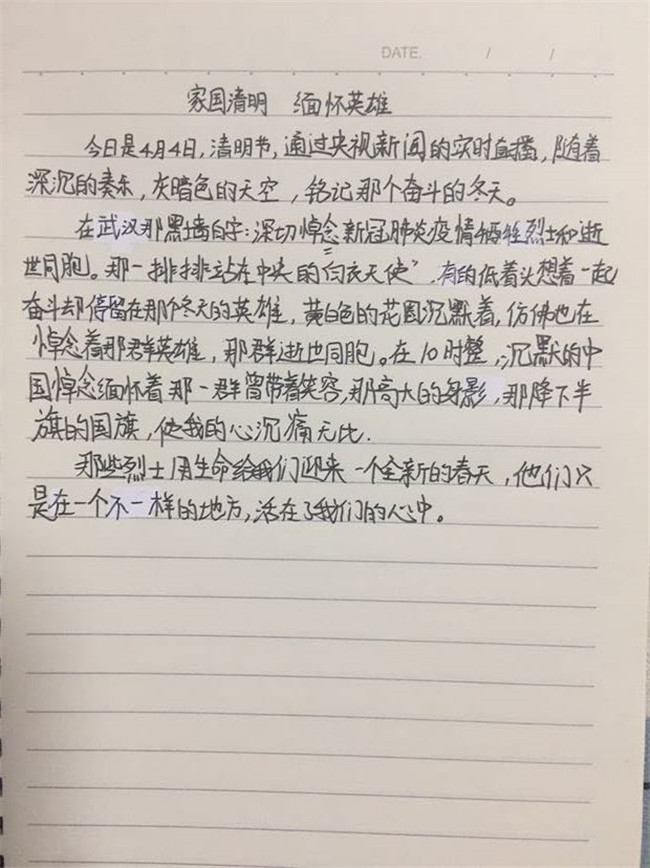 DATE. / /
家国清明 缅怀英雄
今日是4月4日,清明节,通过央视新闻的实时直播,随着
深沉的奏乐,灰暗色的天空,铭记那个奋斗的冬天。
在武汉那黑墙白字:深切悼念新冠肺炎疫情牺牲烈士和逝
世同胞。那一排排站在中央的“白衣天使”,有的低着头想着一起
奋斗却停留在那个冬天的英雄,黄白色的花圈沉默着,仿佛也在
悼念着那群英雄,那群逝世同胞。在10时整,沉默的中
国悼念缅怀着那一群曾带着笑容,那高大的身影,那降下半
旗的国旗,使我的心沉痛无比.
那些烈士用生命给我们迎来一个全新的春天,他们只
是在一个不一样的地方,活在了我们的心中。